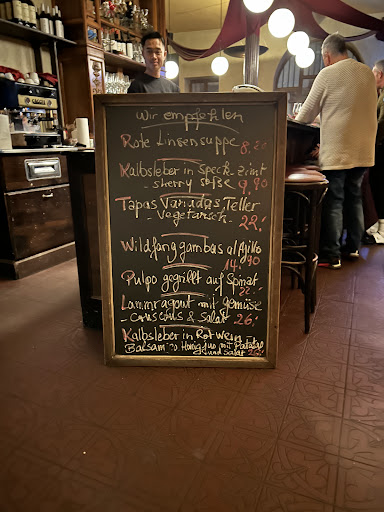 Wir empfehlen
Rote Linsensuppe 8,20
Kalbsleber in Speck
- Sherry Soße 9,90
Tapas Variadas Teller
- Vegetarisch. 22,-
Wildfang gambas al Ajillo
14,90
Pulpo gegrillt auf Spinat
22.-
Lammragout mit gemüse
- couscous & Salat 26,-
Kalbsleber in Rotwein
Balsam u. Honig jus mit
und Salat 26,-